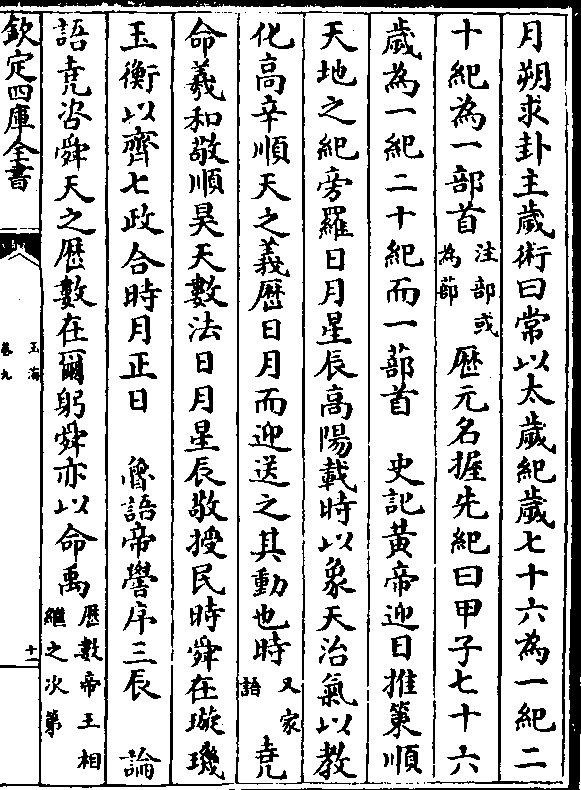 月朔求卦主歲術曰常以太歲紀歲七十六為一紀二
十紀為一部首注部或為蔀歴元名握先紀曰甲子七十六
歲為一紀二十紀而一蔀首　史記黃帝迎日推策順
天地之紀旁羅日月星辰高陽載時以象天治氣以教
化高辛順天之義歴日月而迎送之其動也時又家語堯
命羲和敬順昊天數法日月星辰敬授民時舜在璇璣
玉衡以齊七政合時月正日　魯語帝嚳序三辰　論
語堯咨舜天之歴數在爾躬舜亦以命禹歴數帝王相繼之次第
欽定四庫全書
玉海
卷九
十一